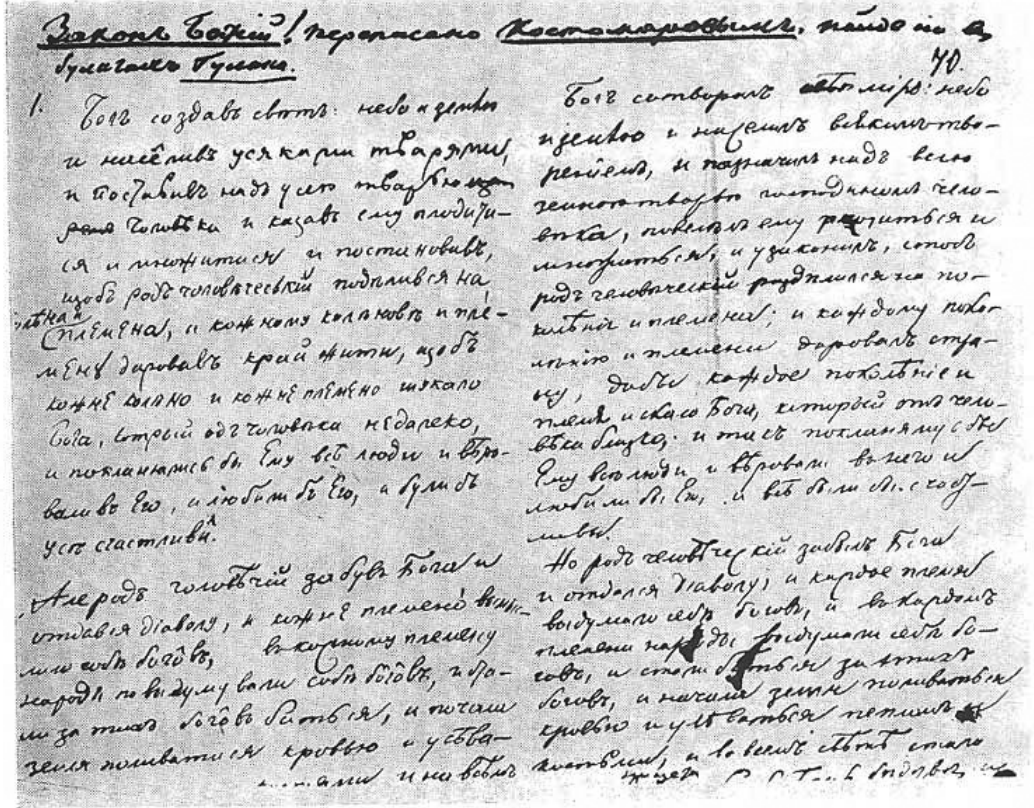 Законъ Божій! переписано Костомаровымъ. найдено въ
бумагахъ Гулака.
40.
1.
Богъ создавъ свѣтъ: небо и землю
и населивъ усякими тварями,
и поставивъ надъ усею тварью
чоловѣка и казавъ ему плодити-
ся и множитися и постановивъ,
щобъ родъ чоловѣческій подѣлився на
племена, и кожному колѣновѣ и пле-
мену даровавъ край жити, щобъ
кожне колѣно и кожне племено шукало
Бога, котрый одъ чоловѣка недалеко,
и покланялись бы Ему всѣ люди и вѣро-
вали въ Его, и любили бъ Его, и були бъ
усѣ счастливй.
Але родъ чоловѣчій забувъ Бога и
отдався діаволу, и кожне племено
собѣ богôвъ, въ кожному племену
народы повыдумували собѣ богôвъ, и
за тихъ богôвъ биться, и почала
земля поливатися кровью и усѣва-
и на всѣмъ
Богъ сотворилъ міръ: небо
и землю и населилъ всякимъ тво-
реніемъ, и назначилъ надъ всею
земною тварью господиномъ чело-
вѣка, повелѣлъ ему родиться и
множиться, и узаконилъ, чтобъ
родъ человѣческій раздѣлился на по-
колѣнія и племена; и каждому поко-
лѣнію и племени даровалъ стра-
ну, дабы каждое поколѣніе и
племя искало Бога, который отъ чело-
вѣка близко; и такъ покланялись бы
Ему всѣ люди и вѣровали въ него и
любили бы Его, и всѣ были бы счаст-
ливы.
Но родъ человѣческій забылъ Бога
и отдался діаволу, и каждое племя
выдумало себѣ боговъ, и въ каждомъ
племени народы выдумали себѣ бо-
говъ, и стали биться за этихъ
боговъ, и начала земля поливаться
кровью и усѣваться пепломъ и
костьми, и во всемъ свѣтѣ стало